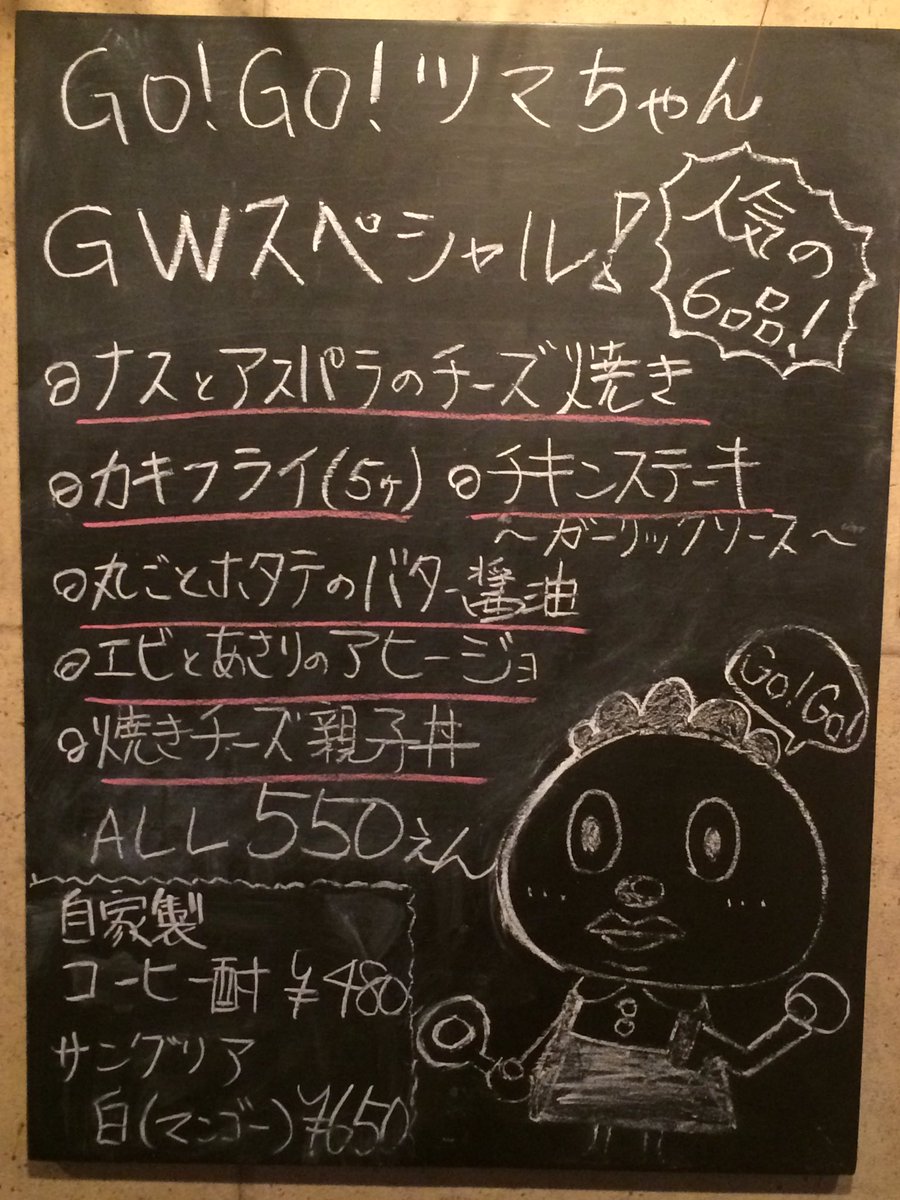 GO!GO!ツマちゃん
GWスペシャル!
人気の
6品!
ナスとアスパラのチーズ焼き
カキフライ(5ヶ)
チキンステーキ
～ガーリックソース～
丸ごとホタテのバター醤油
エビとあさりのアヒージョ
焼きチーズ親子丼
ALL 550えん
Go!Go!
自家製
コーヒー酎 ¥480
サングリア
白(マンゴー)¥650